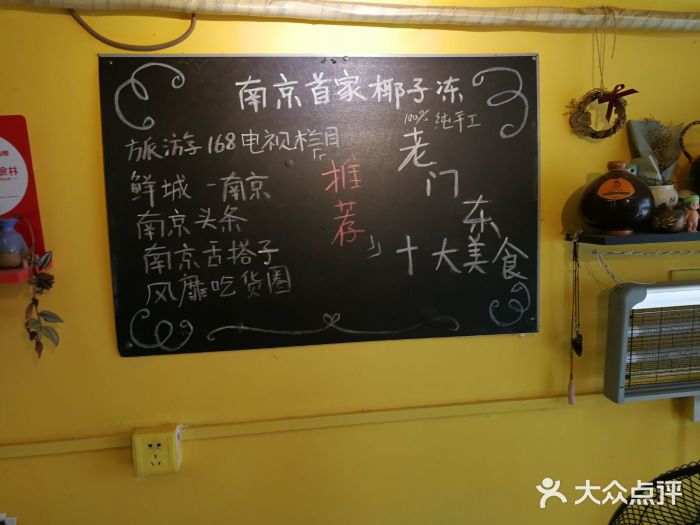 南京首家椰子冻
100% 纯手工
旅游168电视栏目
鲜城-南京
南京头条
南京舌搭子
风靡吃货圈
「推荐」
老门东
十大美食
食林
大众点评